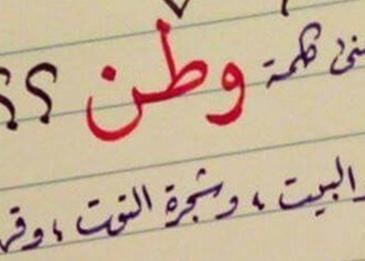 كلمة وطن ؟؟
البيت ، وشجرة التوت ،